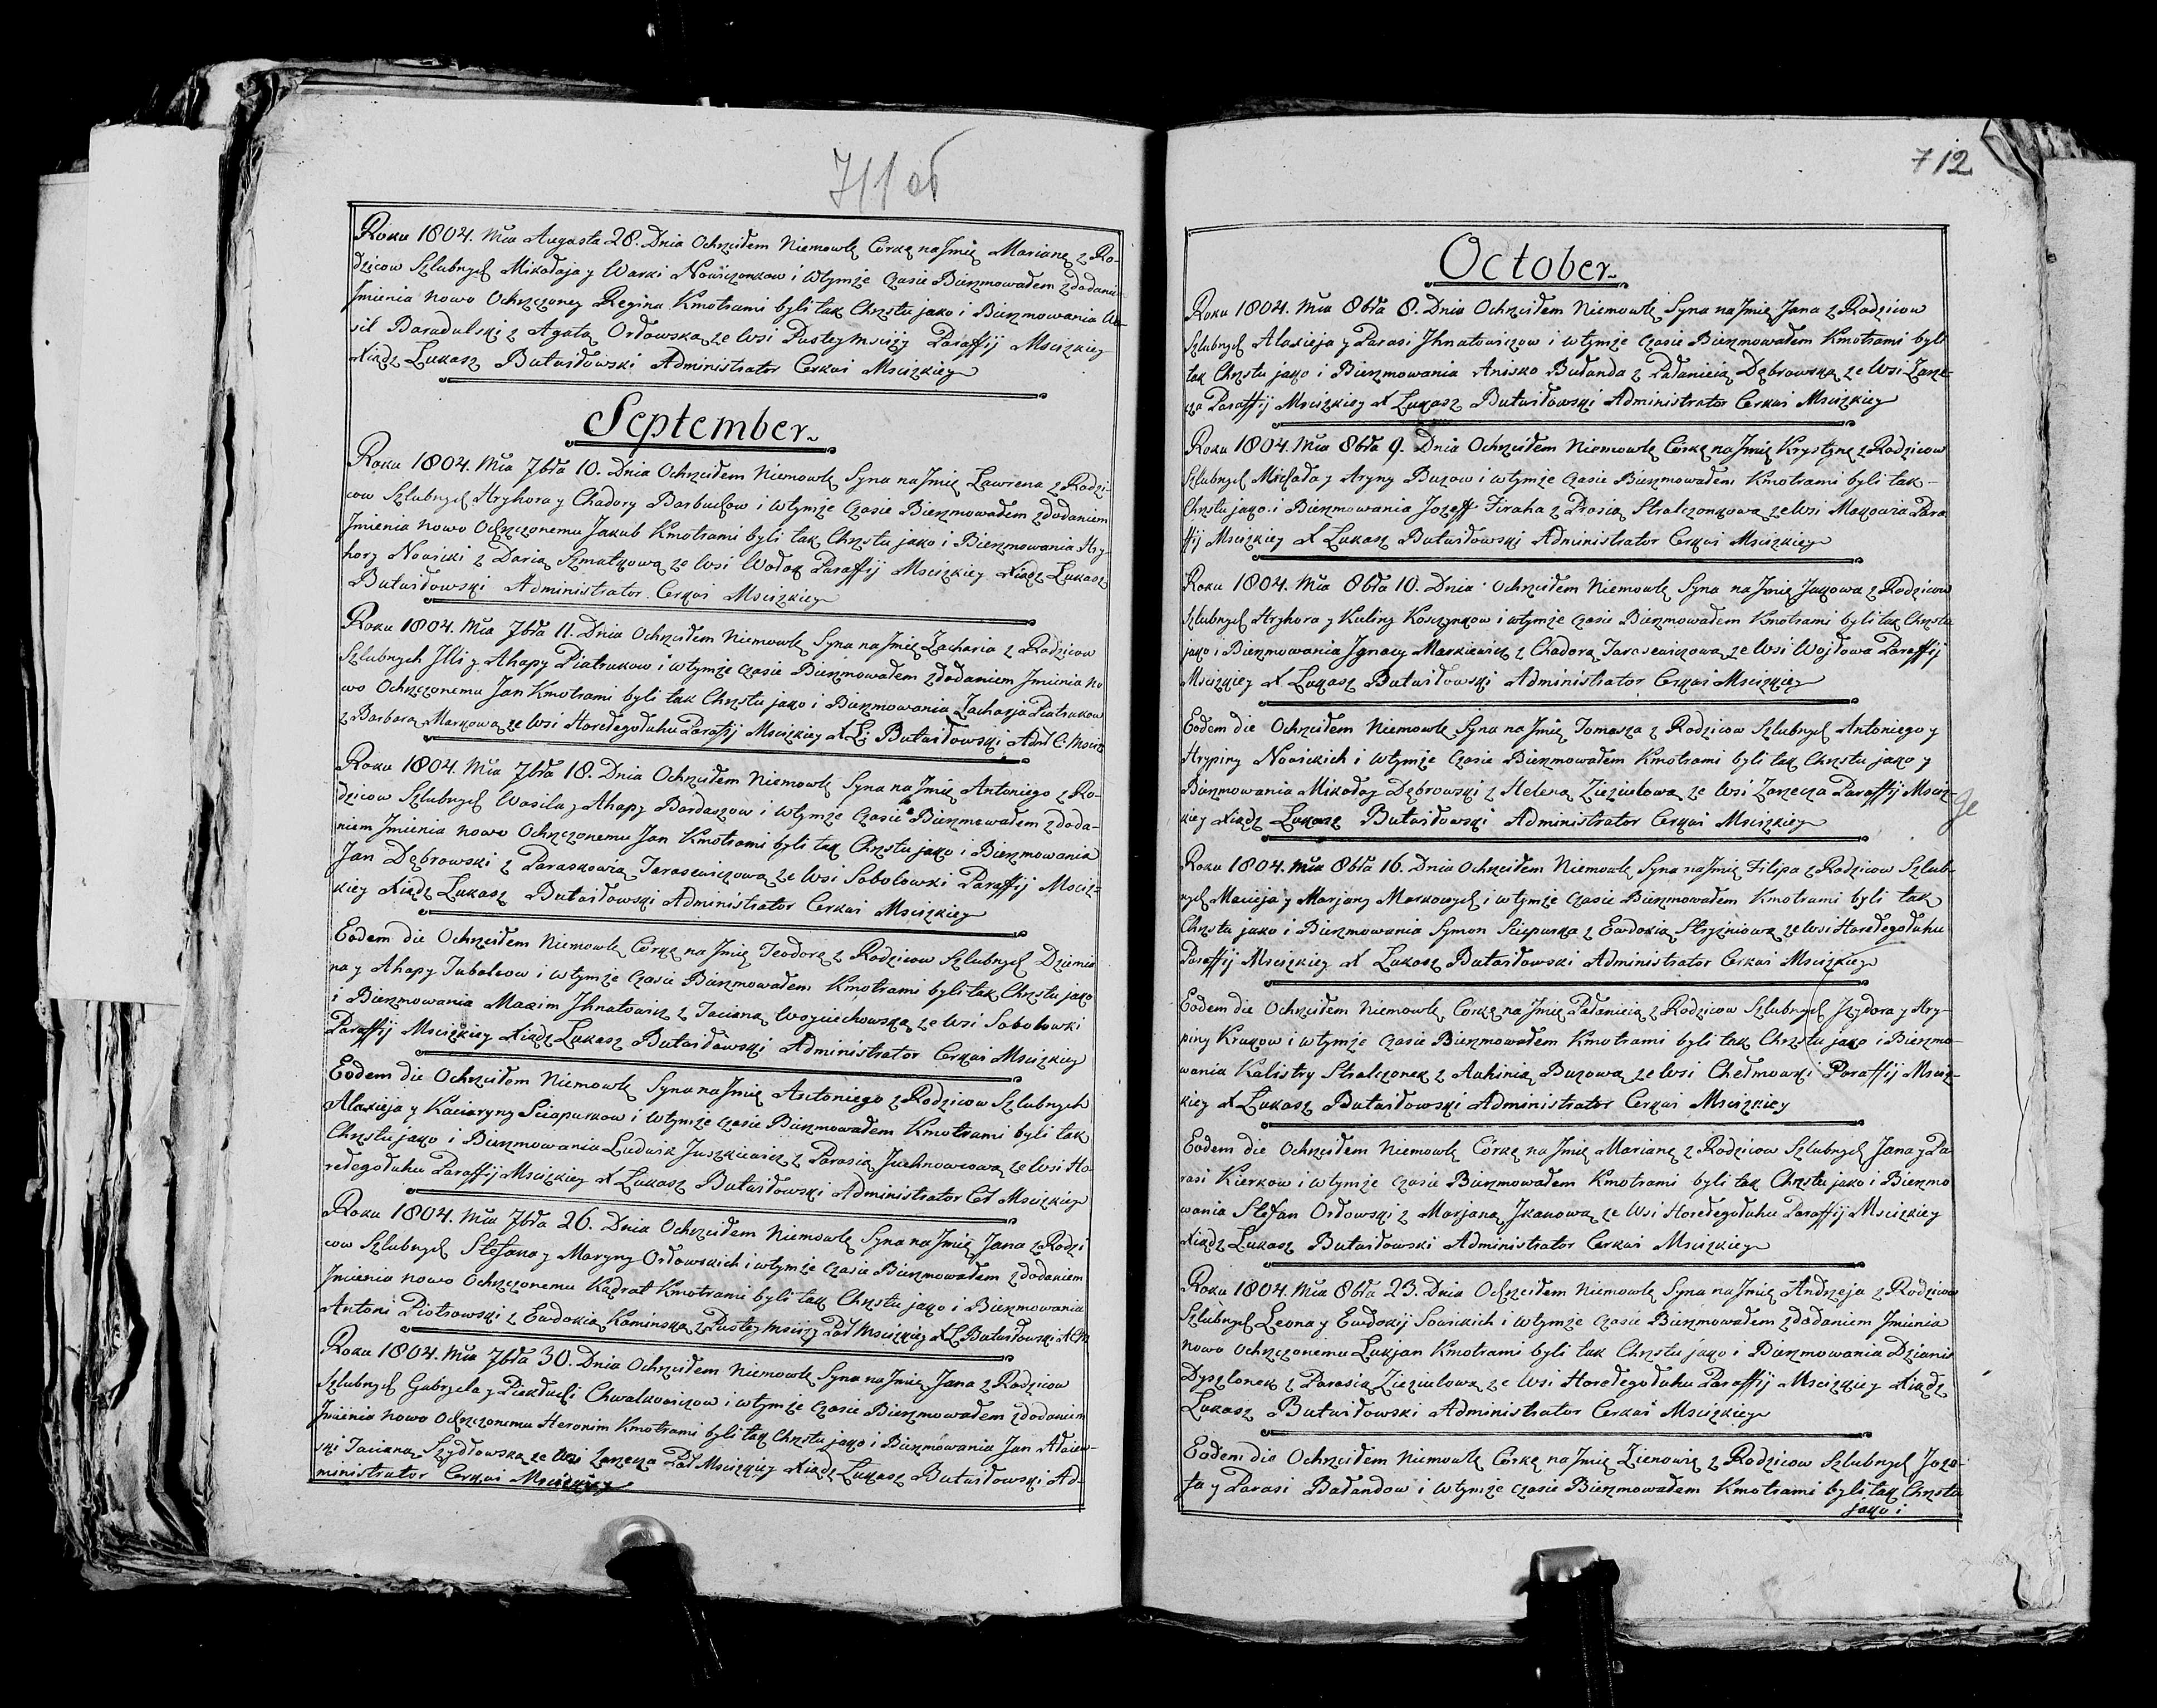 711 об
Roku 1804. Mca Augusta 28. Dnia Ochrzciłem Niemowlę Córkę na Jmię Mariane z Ro-
dzicow Szlubnych Mikołaja y Warki Nowiczonkow i wtymże Czasie Bierzmowałem zdodanie
Jmienia nowo Ochrzczoney Regina Kmotrami byli tak Chrztu jako i Bierzmowania Wa-
sil Baradulski z Agatą Orłowską ze Wsi Pustey Mscizy Paraffij Mscizkiey
Xiądz Łukasz Butwiłowski Administrator Cerkwi Mscizkiey
September.
Roku 1804. Mca 7bra 10. Dnia Ochrzciłem Niemowlę Syna na Jmię Ławrena z Rodzi-
cow Szlubnych Hryhora y Chadory Barbuchow i wtymże Czasie Bierzmowałem zdodaniem
Jmienia nowo Ochrzczonemu Jakub Kmotrami byli tak Chrztu jako i Bierzmowania Hry
hory Nowicki z Darią Szmatkową ze Wsi Wołok Paraffij Mscizkiey Xiądz Łukasz
Butwiłowski Administrator Cerkwi Mscizkiey
Roku 1804. Mca 7bra 11. Dnia Ochrzciłem Niemowlę Syna na Jmię Zacharia z Rodzicow
Szlubnych Jlli y Ahapy Piatrukow i wtymże Czasie Bierzmowałem zdodaniem Jmienia no
wo Ochrzczonemu Jan Kmotrami byli tak Chrztu jako i Bierzmowania Zacharja Piatrukow
z Barbarą Markową ze Wsi Horełegołuhu Paraffij Mscizkiey X Ł: Butwiłowski Admr C: Msciz
Roku 1804. Mca 7bra 18. Dnia Ochrzciłem Niemowlę Syna na Jmię Antoniego z Ro-
dzicow Szlubnych Wasila y Ahapy Bardaszow i wtymże Czasie Bierzmowałem zdoda-
niem Jmienia nowo Ochrzczonemu Jan Kmotrami byli tak Chrztu jako i Bierzmowania
Jan Dębrowski z Paraskowią Jarasewiczową ze Wsi Sobolowki Paraffij Msciz-
kiey Xiądz Łukasz Butwiłowski Administrator Cerkwi Mscizkiey
Eodem die Ochrzciłem Niemowlę Córkę na Jmię Teodorę z Rodzicow Szlubnych Dziemia
na y Ahapy Jubolcow i wtymże Czasie Bierzmowałem Kmotrami byli tak Chrztu jako
i Bierzmowania Maxim Jhnatowicz z Tacianą Woyciechowską ze Wsi Sobolowki
Paraffij Mscizkiey Xiądz Łukasz Butwiłowski Administrator Cerkwi Mscizkiey
Eodem die Ochrzciłem Niemowlę Syna na Jmię Antoniego z Rodzicow Szlubnych
Alaxieja y Kaciaryny Sciapurkow i wtymże Czasie Bierzmowałem Kmotrami byli tak
Chrztu jako i Bierzmowania Ludwik Juszkiewicz z Parasią Juchnowcową ze Wsi Ho-
rełegołuhu Paraffij Mscizkiey X Łukasz Butwiłowski Administrator Cer Mscizkiey
Roku 1804. Mca 7bra 26. Dnia Ochrzciłem Niemowlę Syna na Jmię Jana z Rodzi
cow Szlubnych Stefana y Maryny Orłowskich i wtymże Czasie Bierzmowałem zdodaniem
Jmienia nowo Ochrzczonemu Kądrat Kmotrami byli tak Chrztu jako i Bierzmowania
Antoni Piotrowski z Ewdokią Kaminską z Pustey Mscizy Par Mscizkiey X Ł Butwiłowski A C M
Roku 1804. Mca 7bra 30. Dnia Ochrzciłem Niemowlę Syna na Jmię Jana z Rodzicow
Szlubnych Gabryela y Piekłuchi Chwalkowiczow i wtymże Czasie Bierzmowałem zdodaniem
Jmienia nowo Ochrzczonemu Heronim Kmotrami byli tak Chrztu jako i Bierzmowania Jan
ski Tacianą Szydłowską ze Wsi Zarzecza Par Mscizkiey Xiądz Łukasz Butwiłowski Ad-
ministrator Cerkwi Mscizkiey
712
October.
Roku 1804. Mca 8bra 8. Dnia Ochrzciłem Niemowlę Syna na Jmię Jana z Rodzicow
Szlubnych Alaxieja y Parasi Jhnatowiczow i wtymże Czasie Bierzmowałem Kmotrami byli
tak Chrztu jako i Bierzmowania Anisko Bułanda z Pałanieią Dębrowską ze Wsi Zarze-
cza Paraffij Mscizkiey X Łukasz Butwiłowski Administrator Cerkwi Mscizkiey
Roku 1804. Mca 8bra 9. Dnia Ochrzciłem Niemowlę Córkę na Jmię Krystynę z Rodzicow
Szlubnych Michała y Aryny Buzow i wtymże Czasie Bierzmowałem Kmotrami byli tak-
Chrztu jako i Bierzmowania Jozeff Firaha z Prosią Stralczonkową ze Wsi Makowia Para
ffij Mscizkiey X Łukasz Butwiłowski Administrator Cerkwi Mscizkiey
Roku 1804. Mca 8bra 10. Dnia Ochrzciłem Niemowlę Syna na Jmię Jakowa z Rodzicow
Szlubnych Hryhora y Kuliny Koscynkow i wtymże Czasie Bierzmowałem Kmotrami byli tak Chrztu
jako i Bierzmowania Jgnacy Markiewicz z Chadorą Jarasewiczową ze Wsi Wojłowa Paraffij
Mscizkiey X Łukasz Butwiłowski Administrator Cerkwi Mscizkiey
Eodem die Ochrzciłem Niemowlę Syna na Jmię Tomasza z Rodzicow Szlubnych Antoniego y
Hrypiny Nowickich i wtymże Czasie Bierzmowałem Kmotrami byli tak Chrztu jako y
Bierzmowania Mikołay Dębrowski z Heleną Zieziulową ze Wsi Zarzecza Paraffij Msciz-
kiey Xiądz Łukasz Butwiłowski Administrator Cerkwi Mscizkiey
Roku 1804. Mca 8bra 16. Dnia Ochrzciłem Niemowlę Syna na Jmię Filipa z Rodzicow Szlub-
nych Macieja y Marjany Markowych i wtymże Czasie Bierzmowałem Kmotrami byli tak
Chrztu jako i Bierzmowania Symon Sciepurka z Ewdokią Stryzniową ze Wsi Horełegołuhu
Paraffij Mscizkiey X Łukasz Butwiłowski Administrator Cerkwi Mscizkiey
Eodem die Ochrzciłem Niemowlę Córkę na Jmię Pałanieią z Rodzicow Szlubnych Jzydora y Hry-
piny Krukow i wtymże Czasie Bierzmowałem Kmotrami byli tak Chrztu jako i Bierzmo-
wania Kalistry Stralczonek z Auhinią Buzową ze Wsi Chełmowki Paraffij Msciz-
kiey X Łukasz Butwiłowski Administrator Cerkwi Mscizkiey
Eodem die Ochrzciłem Niemowlę Córkę na Jmię Marianę z Rodzicow Szlubnych Jana y Pa-
rasi Kierkow i wtymże Czasie Bierzmowałem Kmotrami byli tak Chrztu jako i Bierzmo
wania Stefan Orłowski z Marjaną Jkanową ze Wsi Horełegołuhu Paraffij Mscizkiey
Xiądz Łukasz Butwiłowski Administrator Cerkwi Mscizkiey
Roku 1804. Mca 8bra 23. Dnia Ochrzciłem Niemowlę Syna na Jmię Andrzeja z Rodzicow
Szlubnych Leona y Ewdokij Sowickich i wtymże Czasie Bierzmowałem zdodaniem Jmienia
nowo Ochrzczonemu Łukjan Kmotrami byli tak Chrztu jako i Bierzmowania Dzianis
Dyszlonek z Parasią Zieziulową ze Wsi Horełegołuhu Paraffij Mscizkiey Xiądz
Łukasz Butwiłowski Administrator Cerkwi Mscizkiey
Eodem die Ochrzciłem Niemowlę Córkę na Jmię Zienowię z Rodzicow Szlubnych Joze-
fa y Parasi Bałandow i wtymże Czasie Bierzmowałem Kmotrami byli tak Chrztu
jako i